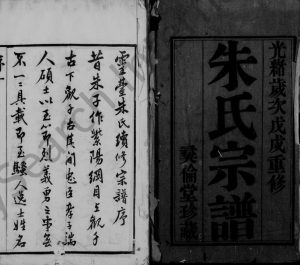 光緒歲次戊戌重修
朱氏宗譜
彝倫堂珍藏
靈臺朱氏續修宗譜序
昔朱子作紫陽綱目上觀千
古下觀千古其間忠臣孝子端
人碩士以至節烈義勇之事無
不一一具載即至騷人逸士姓名
序一